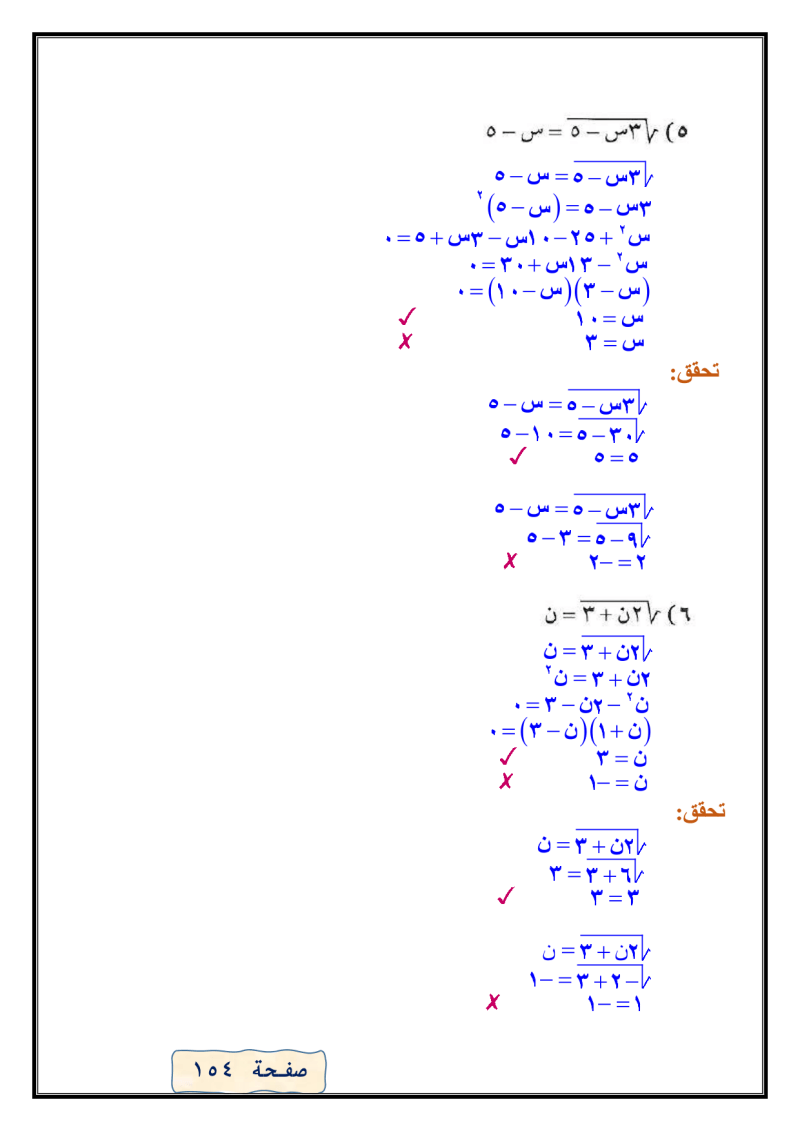 ٥) √(٣س – ٥) = س – ٥
√(٣س – ٥) = س – ٥
٣س – ٥ = (س – ٥)²
س² + ٢٥ – ١٠س – ٣س + ٥ = ٠
س² – ١٣س + ٣٠ = ٠
(س – ٣)(س – ١٠) = ٠
س = ١٠ ✓
س = ٣ ✗
تحقق:
√(٣س – ٥) = س – ٥
√(٣٠ – ٥) = ١٠ – ٥
٥ = ٥ ✓
√(٣س – ٥) = س – ٥
√(٩ – ٥) = ٣ – ٥
٢ = –٢ ✗
٦) √(٢ن + ٣) = ن
√(٢ن + ٣) = ن
٢ن + ٣ = ن²
ن² – ٢ن – ٣ = ٠
(ن + ١)(ن – ٣) = ٠
ن = ٣ ✓
ن = –١ ✗
تحقق:
√(٢ن + ٣) = ن
√(٦ + ٣) = ٣
٣ = ٣ ✓
√(٢ن + ٣) = ن
√(–٢ + ٣) = –١
١ = –١ ✗
صفحة ١٥٤